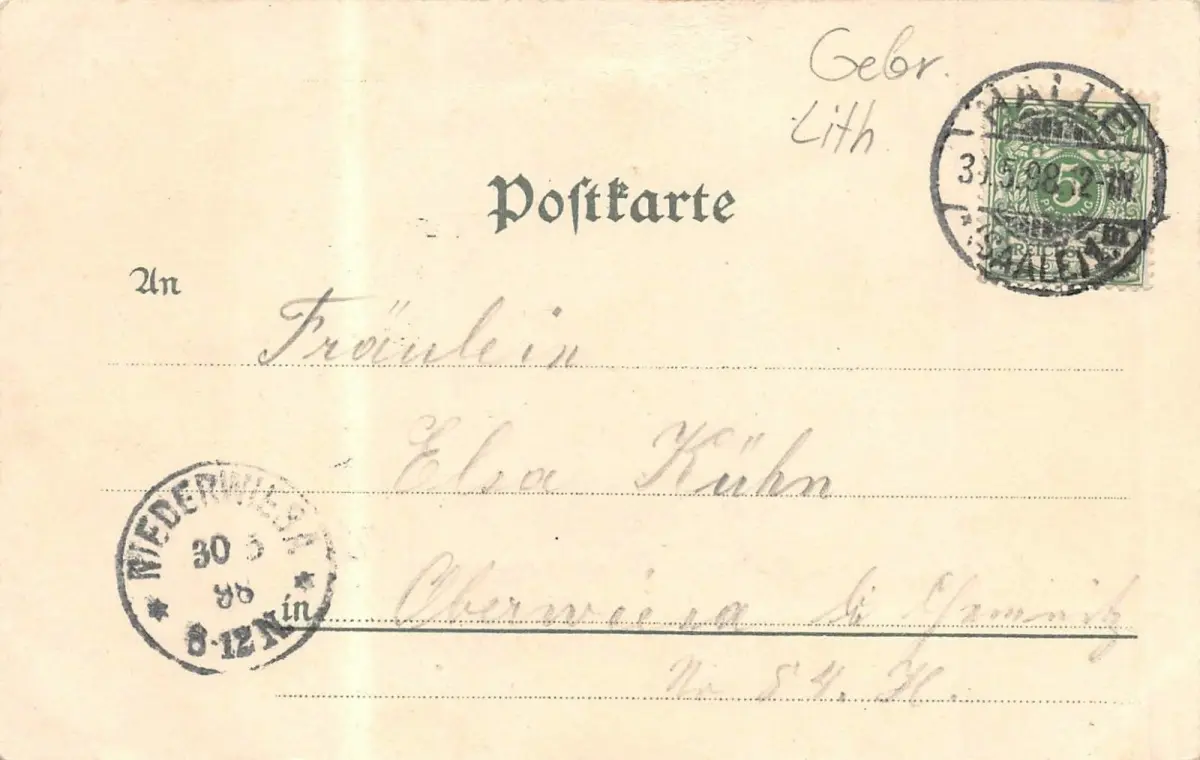 Gebr.
Lith
Postkarte
HALLE
5.98. 2-
(SAALE) 1.
5
PFENNIG
An
Fräulein
Elsa Kühn
NIEDERWIESA
30 5
98
8-12 N
in Oberwiesa b. Chemnitz
No 54. H.